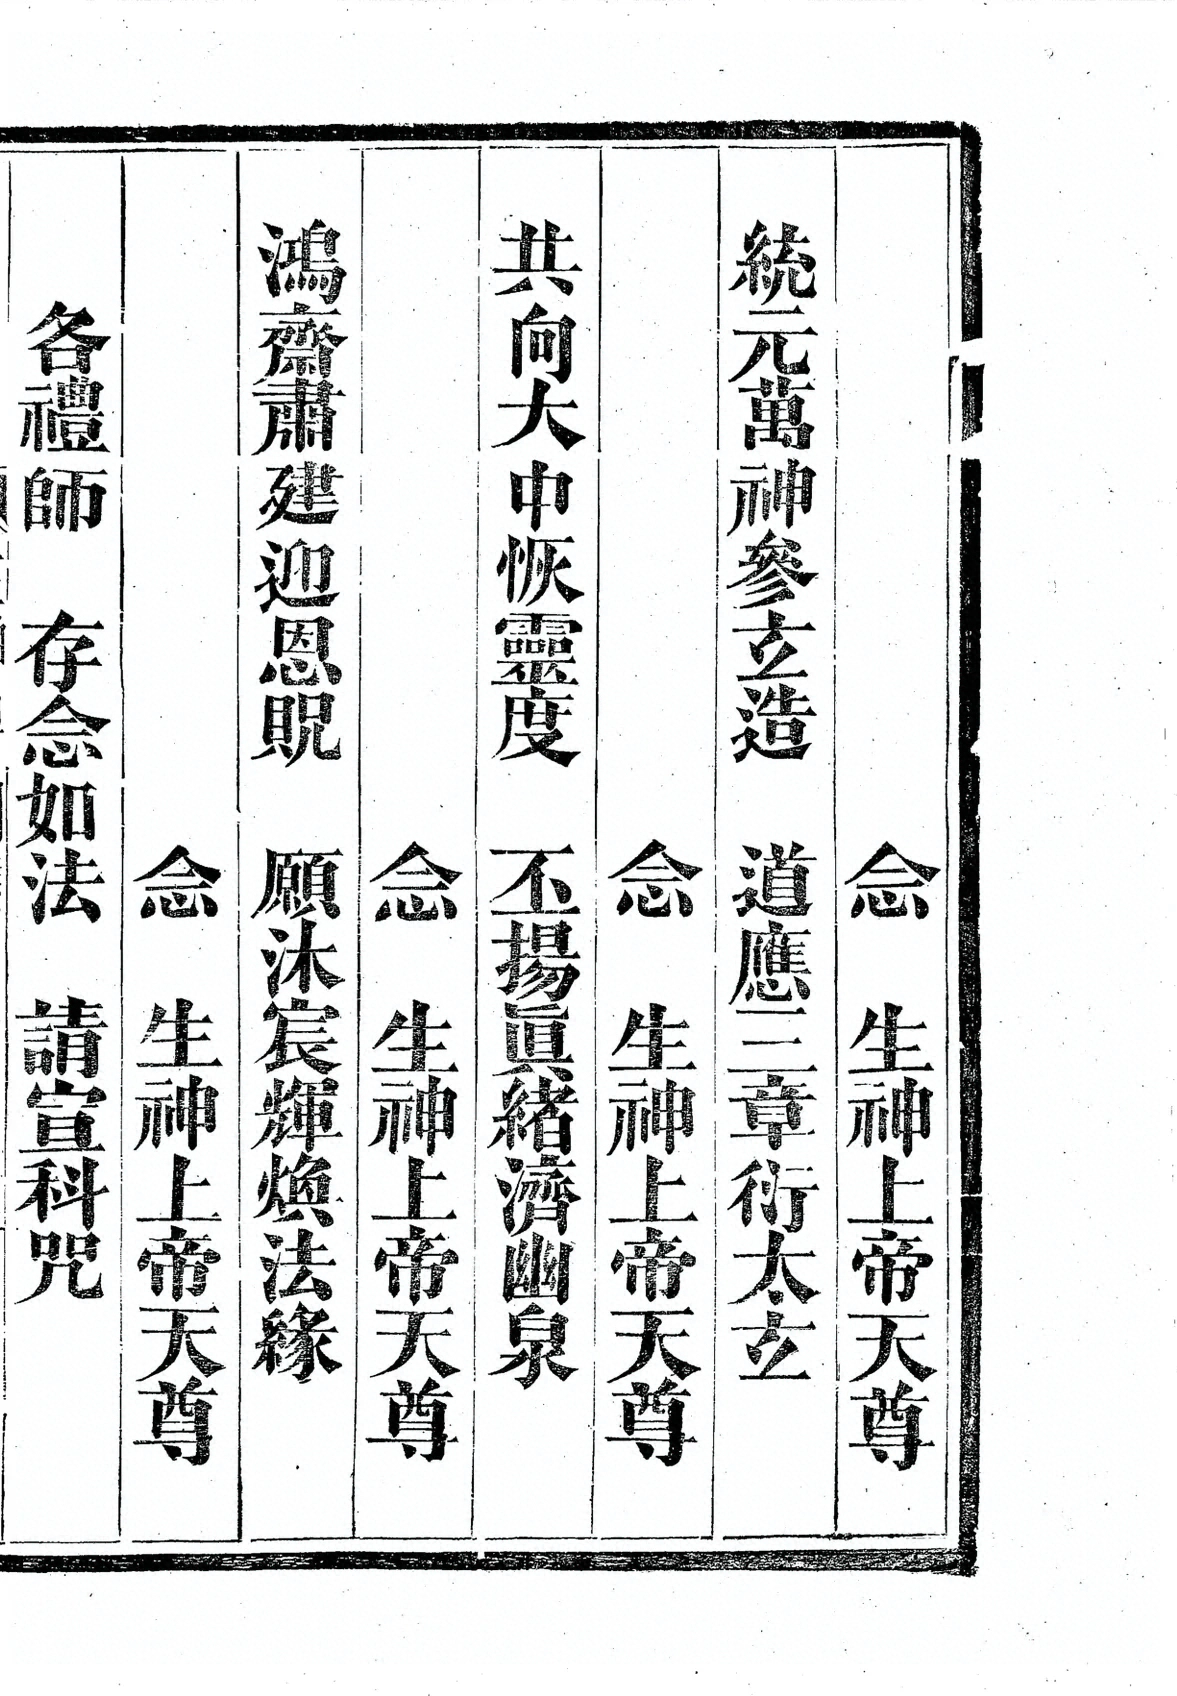 念　生神上帝天尊
統元萬神參玄造　道應三章衍太玄
念　生神上帝天尊
共向大中恢靈度　丕揚眞緒濟幽泉
念　生神上帝天尊
鴻齋肅建迎恩貺　願沐宸輝煥法緣
念　生神上帝天尊
各禮師　存念如法　請宣科咒